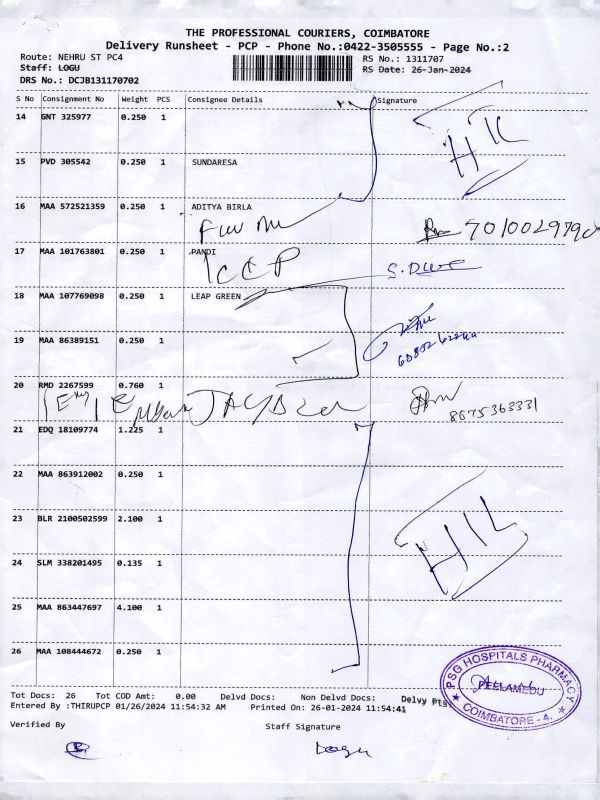 THE PROFESSIONAL COURIERS, COIMBATORE
Delivery Runsheet - PCP - Phone No.:0422-3505555 - Page No.:2
Route: NEHRU ST PC4
Staff: LOGU
DRS No.: DCJB131170702
RS No.: 1311707
RS Date: 26-Jan-2024
S No Consignment No Weight PCS Consignee Details Signature
14 GNT 325977 0.250 1
15 PVD 305542 0.250 1 SUNDARESA
16 MAA 572521359 0.250 1 ADITYA BIRLA
17 MAA 101763801 0.250 1 PANDI
ICCP
18 MAA 107769098 0.250 1 LEAP GREEN
19 MAA 86389151 0.250 1
20 RMD 2267599 0.760 1
8675363331
21 EDQ 18109774 1.225 1
22 MAA 863912002 0.250 1
23 BLR 2100502599 2.100 1
24 SLM 338201495 0.135 1
25 MAA 863447697 4.100 1
26 MAA 108444672 0.250 1
Tot Docs: 26 Tot COD Amt: 0.00 Delvd Docs: Non Delvd Docs: Delvy Pts:
Entered By :THIRUPCP 01/26/2024 11:54:32 AM Printed On: 26-01-2024 11:54:41
Verified By Staff Signature
Logu
PSG HOSPITALS PHARMACY
PEELAMEDU
COIMBATORE - 4.